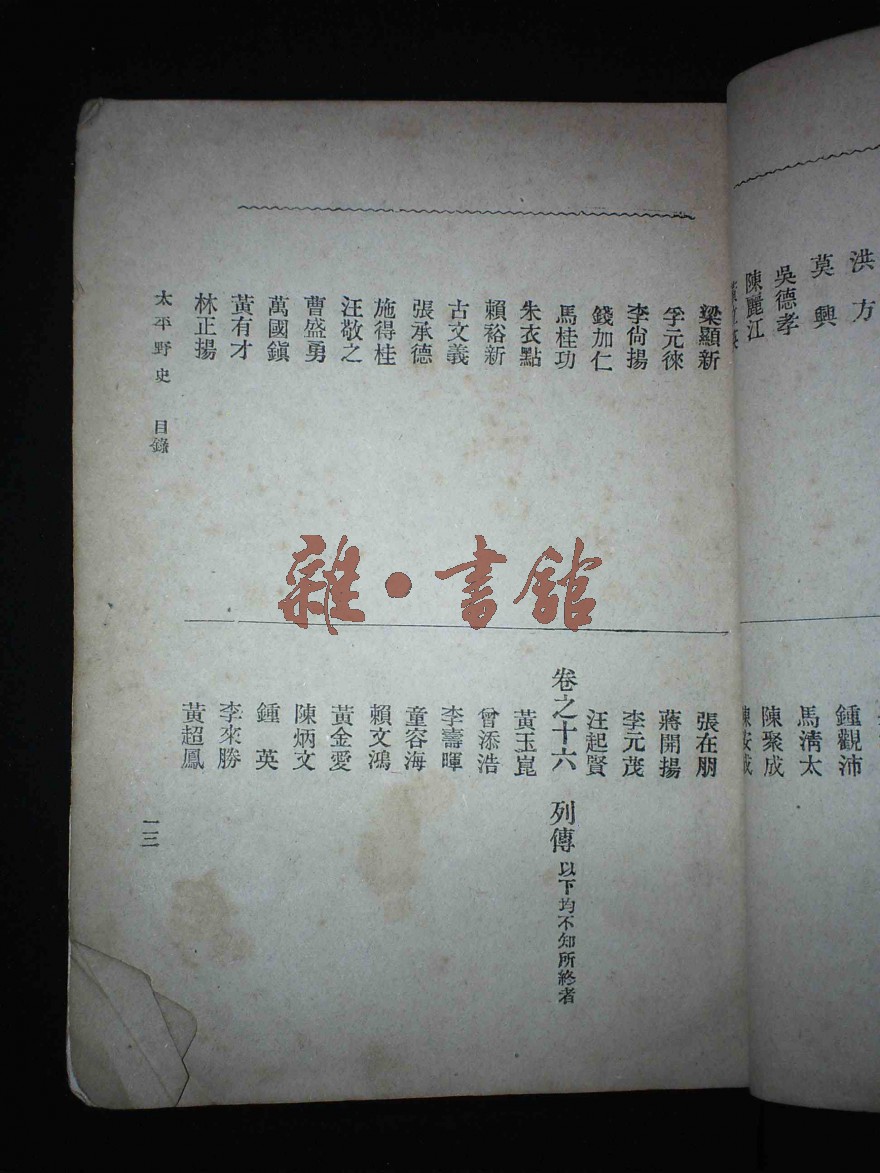 洪方
莫興
吳德孝
陳麗江
鍾觀沛
馬淸太
陳聚成
陳安成
梁顯新
李尙揚
錢加仁
馬桂功
朱衣點
賴裕新
古文義
張承德
施得桂
汪敬之
曹盛勇
萬國鎭
黃有才
林正揚
張在朋
蔣開揚
李元茂
汪起賢
卷之十六 列傳 以下均不知所終者
黃玉崑
曾添浩
李壽暉
童容海
賴文鴻
黃金愛
陳炳文
鍾英
李來勝
黃超鳳
太平野史 目錄
一三
雜·書館